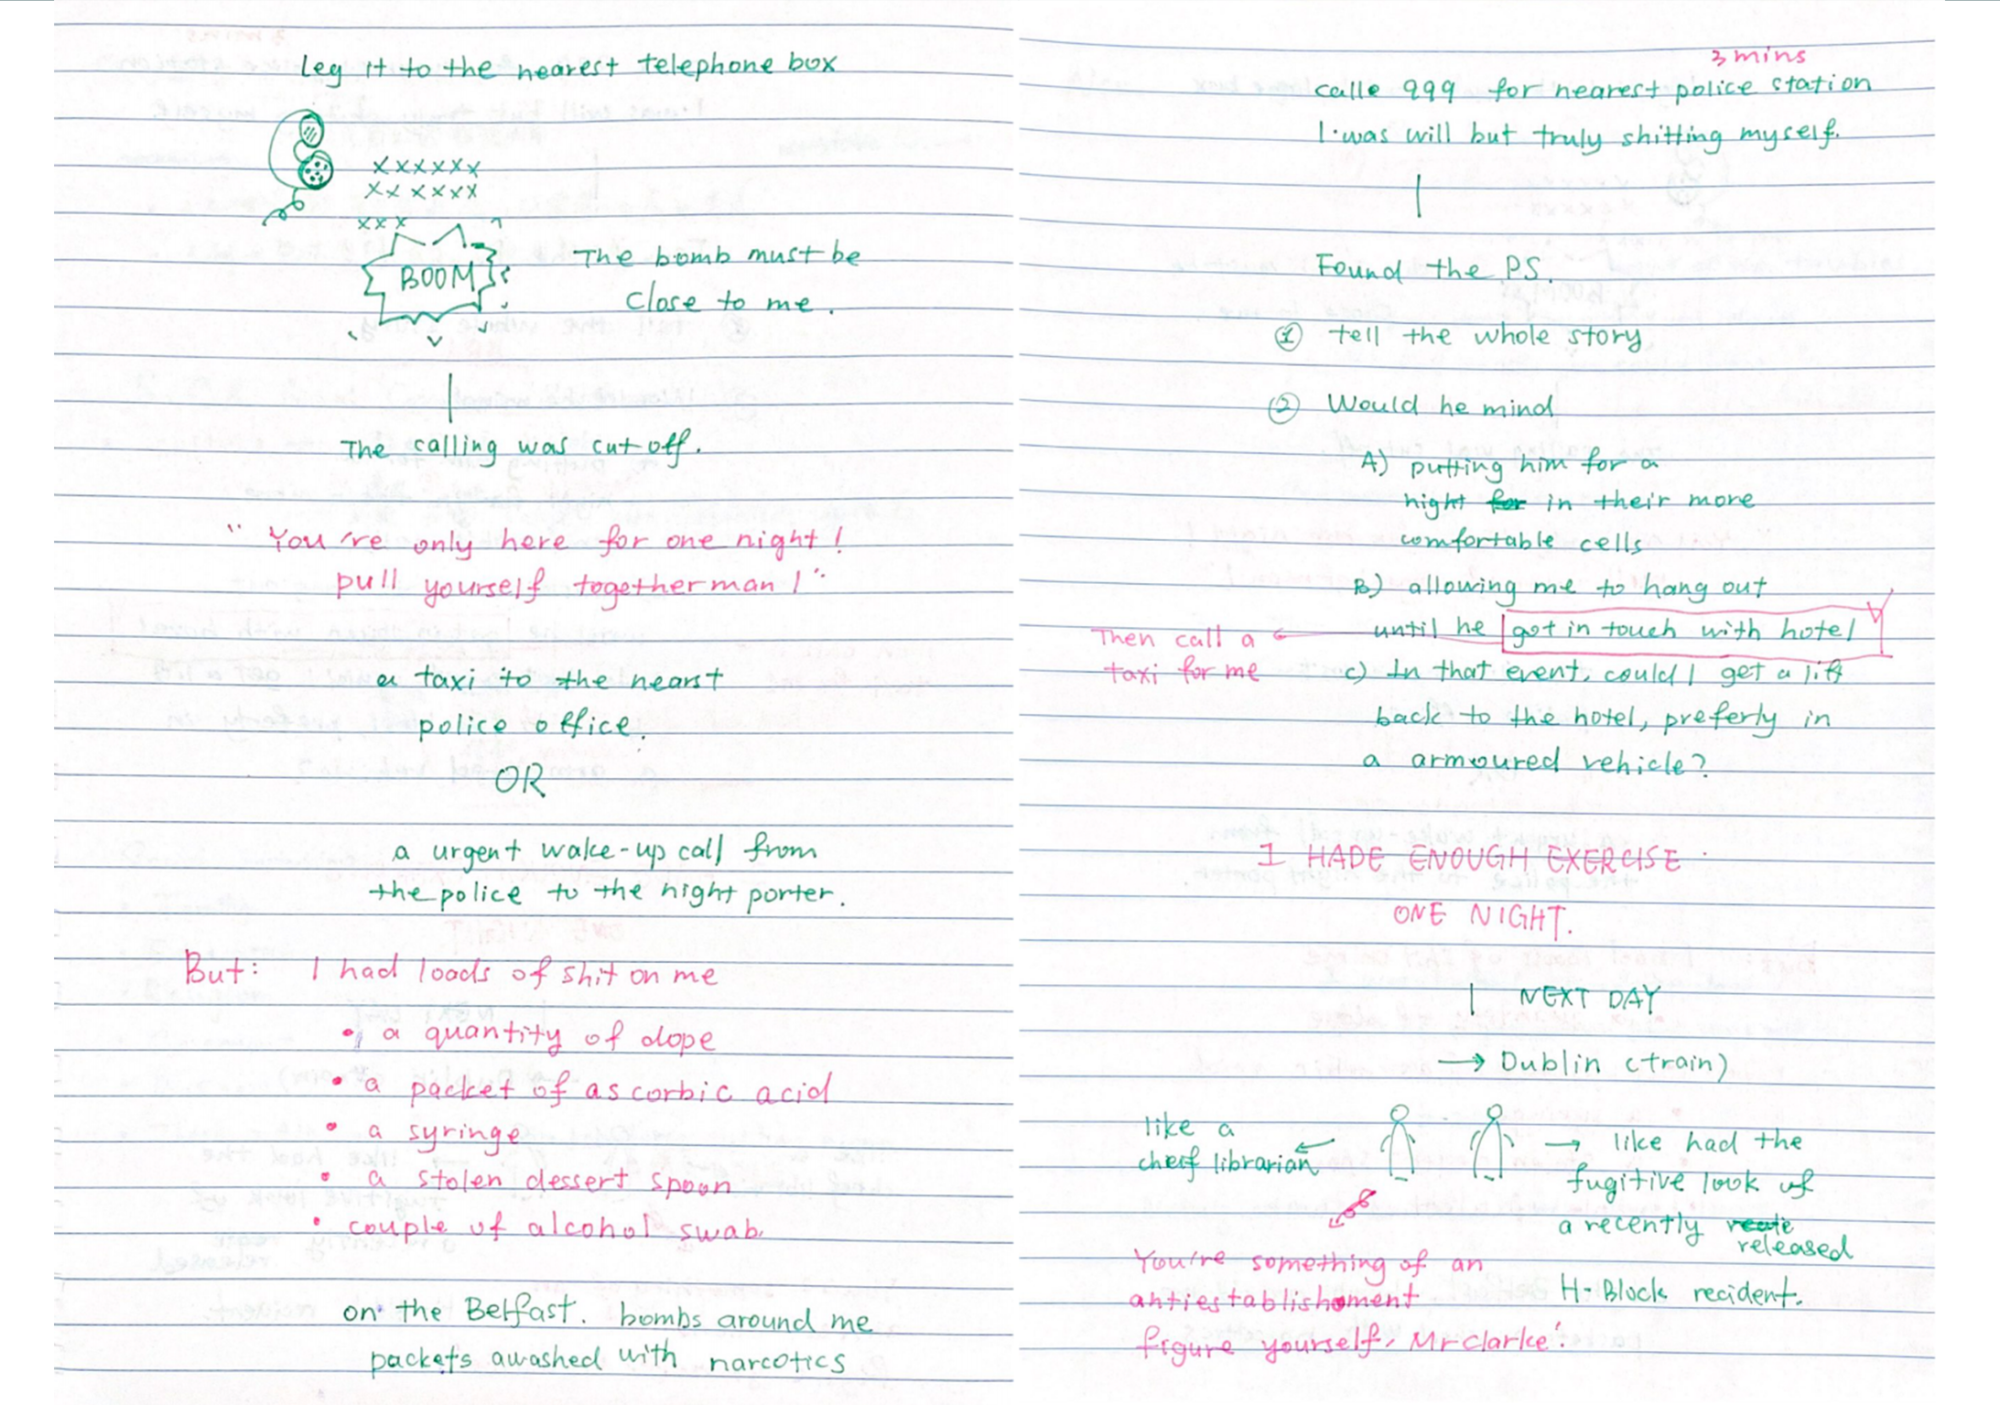 Leg it to the nearest telephone box
xxxxxx
xxxxxx
xxx
BOOM
The bomb must be
close to me.
The calling was cut off.
"You're only here for one night!
pull yourself together man!"
a taxi to the nearst
police office.
OR
a urgent wake-up call from
the police to the night porter.
But: I had loads of shit on me
• a quantity of dope
• a packet of ascorbic acid
• a syringe
• a stolen dessert spoon
• couple of alcohol swab.
on the Belfast. bombs around me
packets awashed with narcotics
3 mins
calle 999 for nearest police station
I was will but truly shitting myself.
Found the P.S.
① tell the whole story
② Would he mind
A) putting him for a
night for in their more
comfortable cells
B) allowing me to hang out
until he got in touch with hotel
Then call a
taxi for me
C) In that event, could I get a lift
back to the hotel, preferly in
a armoured vehicle?
I HADE ENOUGH EXERCISE
ONE NIGHT.
NEXT DAY
→ Dublin (train)
like a
cheif librarian
→ like had the
fugitive look of
a recently
released
H-Block recident.
You're something of an
antiestablishoment
figure yourself, Mr Clarke!